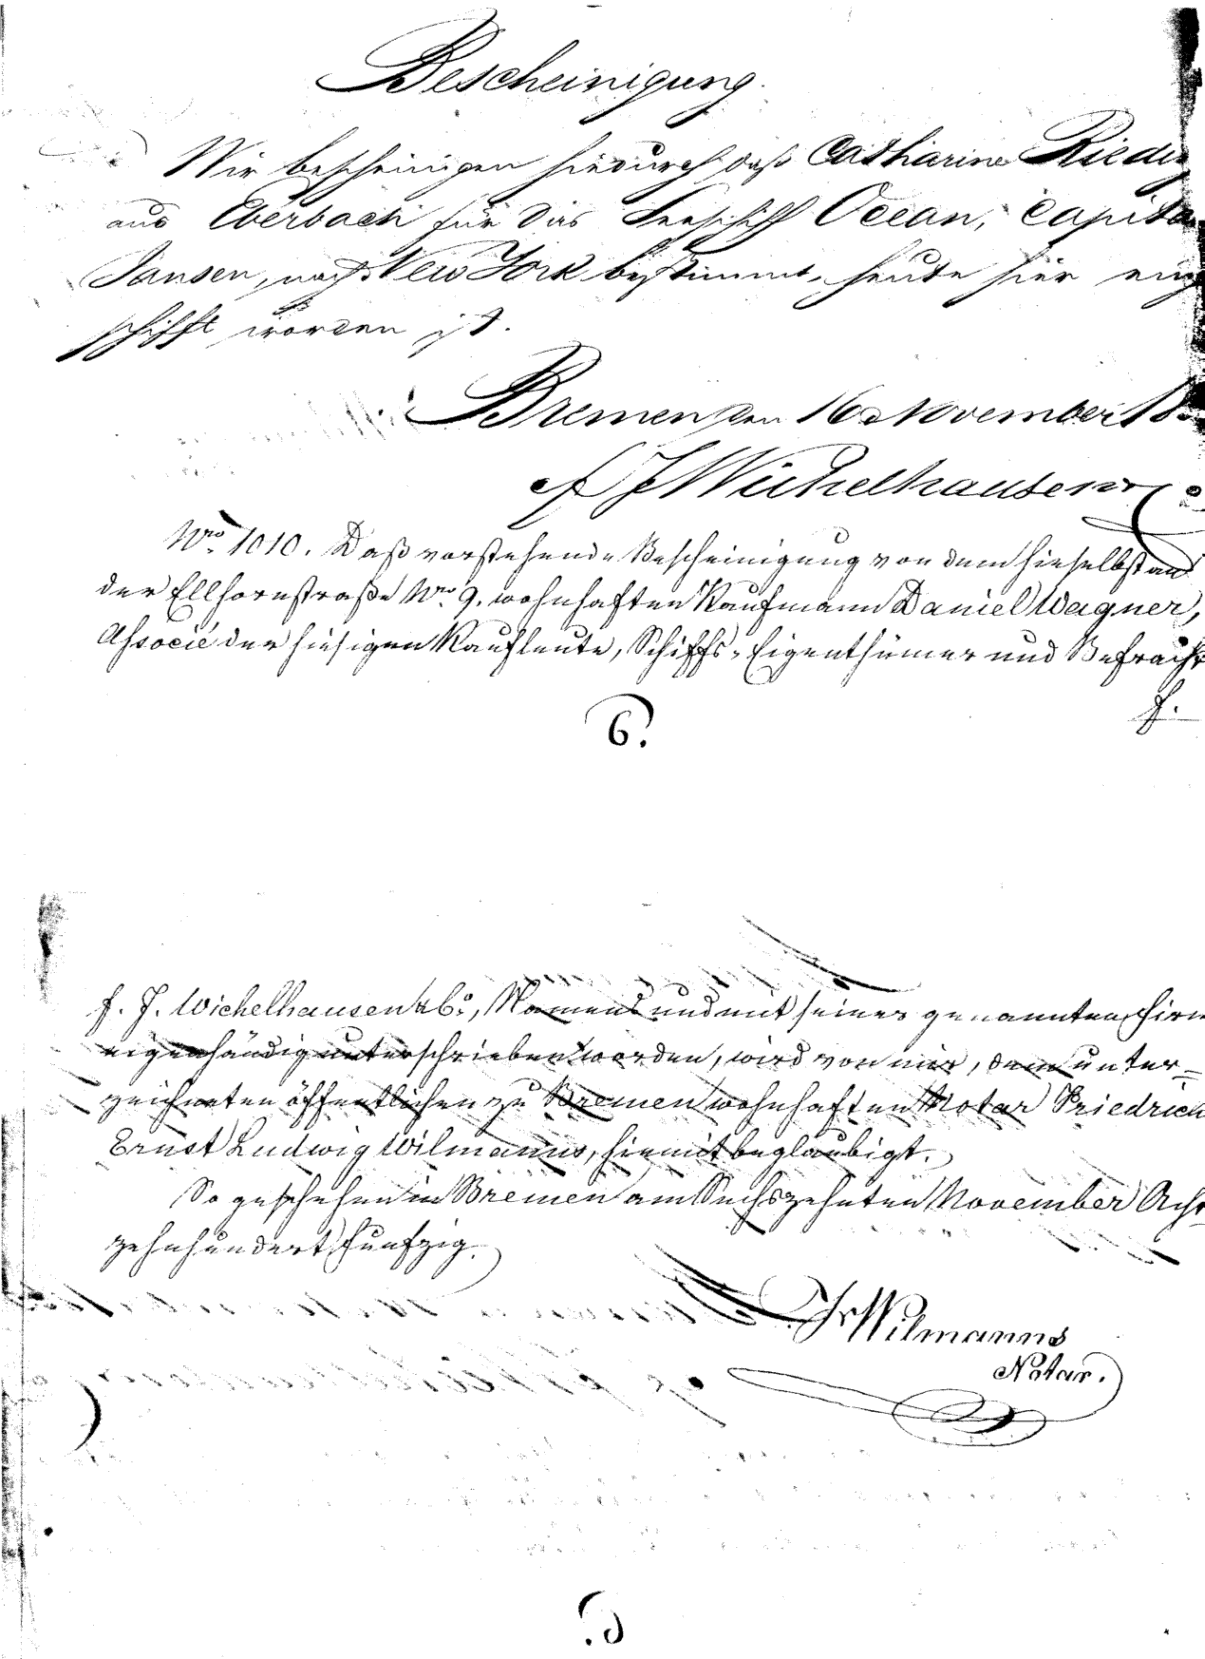 Bescheinigung.
Wir bescheinigen hiedurch daß Catharina Riedin
aus Eberbach für das Seeschiff Ocean, Capita
Jansen, nach New York bestimmt, heute hier eing
schifft worden ist.
Bremen den 16 November 18
F J Wichelhausen
Nro. 1010. Daß vorstehende Bescheinigung von dem hieselbst an
der Ellhornstraße Nro. 9. wohnhaften Kaufmann Daniel Wagner,
Associé der hiesigen Kaufleute, Schiffs-Eigenthümer und Befracht
F.
6.
F. J. Wichelhausen & Co., Namens und mit seiner genannten Firm
eigenhändig unterschrieben worden, wird von mir, dem unter-
zeichneten öffentlichen zu Bremen wohnhaften Notar Friedrich
Ernst Ludwig Wilmanns, hiemit beglaubigt.
So geschehen in Bremen am Sechszehnten November Acht
zehnhundert Funfzig.
Wilmanns
Notar.